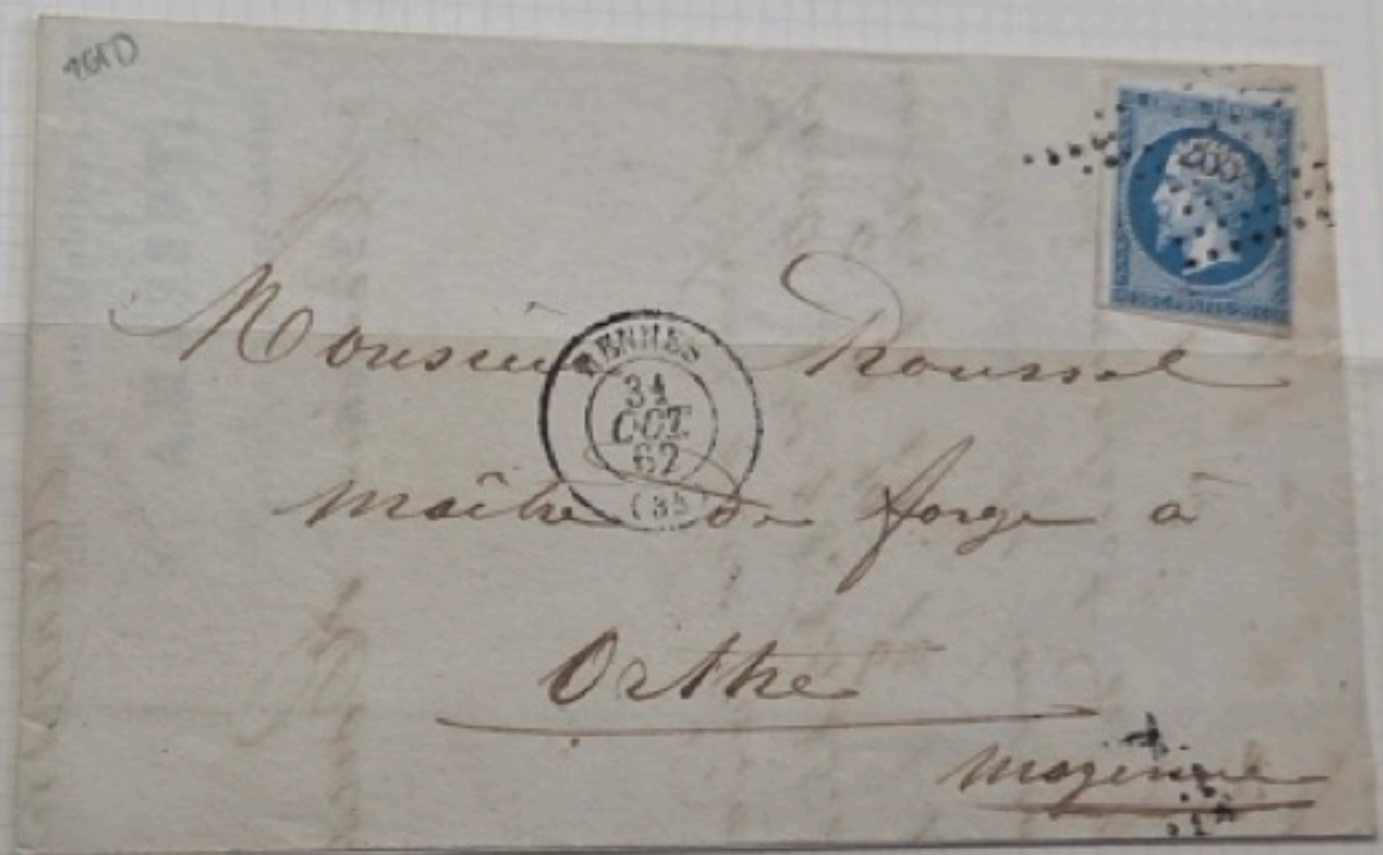 Monsieur Roussel
RENNES
31
OCT.
62
(35)
maître de forge à
Orthe
Mayenne